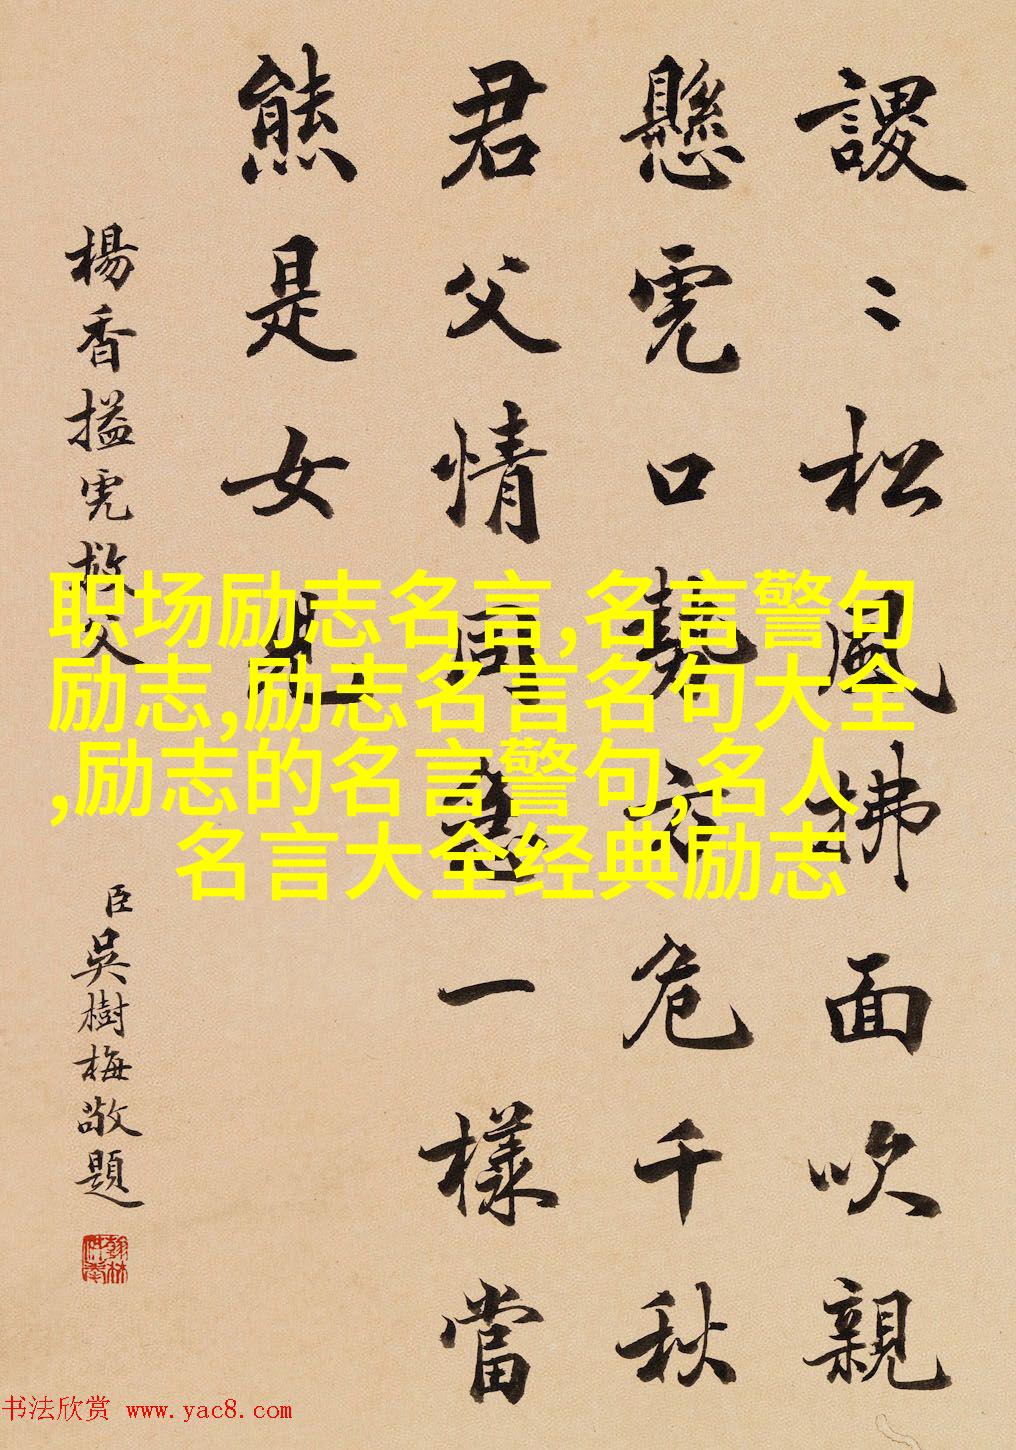 謖〻松風拂面吹親
懸虎口勢交危千秋
君父情同急一樣當
熊是女兒
楊香搤虎救父
臣吳樹梅敬題
职场励志名言,名言警句
励志,励志名言名句大全
,励志的名言警句,名人
名言大全经典励志
书法欣赏 www.yac8.com